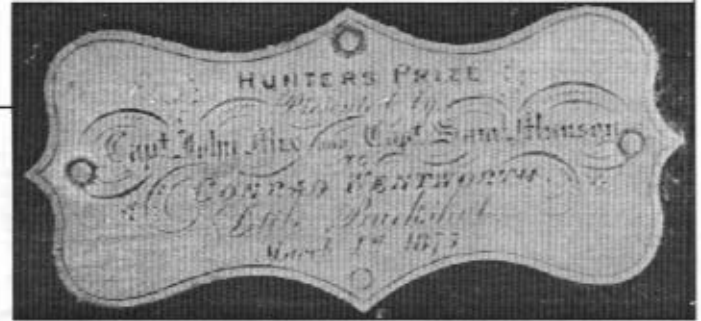 HUNTERS PRIZE
Presented by
Capt. John Mix and Capt. Saml. Munson
TO
CONRAD WENTWORTH
Little Buckshot
March 1st 187